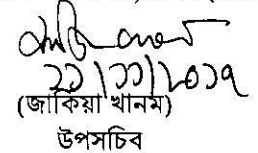 ২১/১১/২০১৭
(জাকিয়া খানম)
উপসচিব